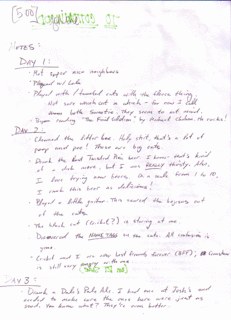 500
NOTES:
DAY 1:
- Met super nice neighbors
- Played w/ Lola
- Played with / hunted cats with the three string.
Not sure which cat is which - for now I call
them both Swanstro. They seem to not mind.
- Began reading "The Final Solution" by Michael Chabon. He rocks!
DAY 2:
- Cleaned the litter box. Holy shit, that's a lot of
poop and pee! These are big cats.
- Drank the best Twisted Pine beer I know that's kind
of a dick move, but I was REALLY thirsty. Also,
I love trying new beers. On a scale from 1 to 10,
I rank this beer as delicious!
- Played a little guitar. This scared the bejesus out
of the cats.
- The black cat (Cribel?) is staring at me.
- Discovered the NAME TAG on the cats. All confusion is
gone.
- Cribel and I are now best friends forever (BFF);
is still very angry with me.
DAY 3:
- Drank a Dale's Pale Ale. I had one at Josh's and
needed to make sure the ones here were just as
good. You know what? They're even better.